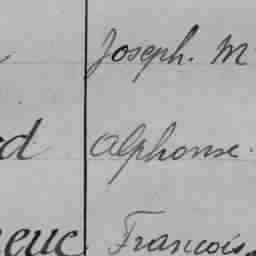 Joseph. M
d Alphonse.
euc François